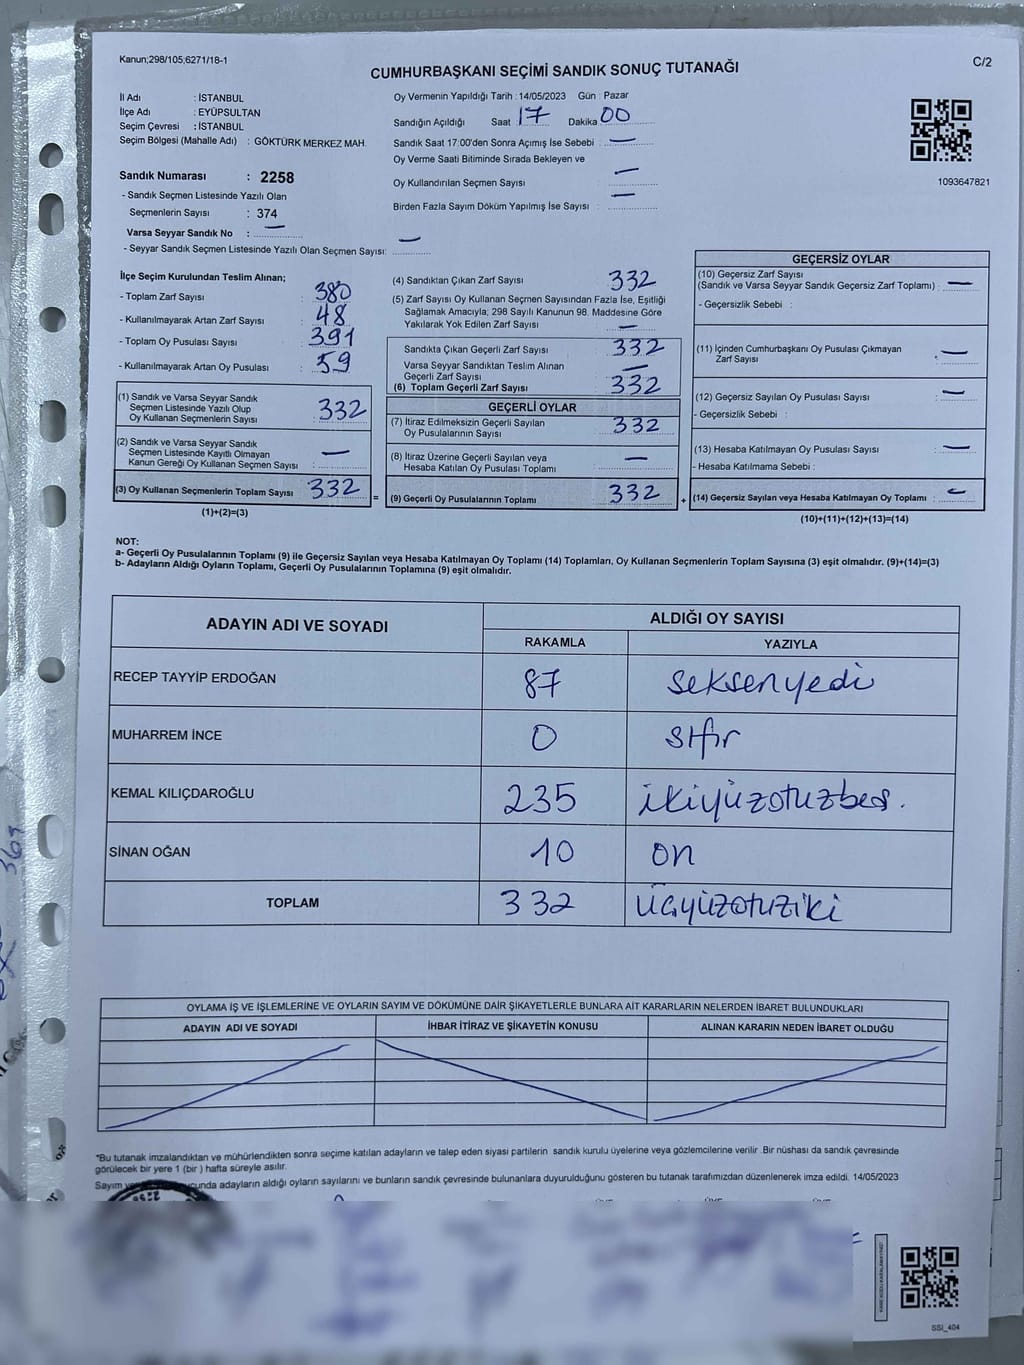 Kanun;298/105,6271/18-1
C/2
CUMHURBAŞKANI SEÇİMİ SANDIK SONUÇ TUTANAĞI
İl Adı : İSTANBUL
İlçe Adı : EYÜPSULTAN
Seçim Çevresi : İSTANBUL
Seçim Bölgesi (Mahalle Adı) : GÖKTÜRK MERKEZ MAH.
Sandık Numarası : 2258
- Sandık Seçmen Listesinde Yazılı Olan
Seçmenlerin Sayısı : 374
Varsa Seyyar Sandık No : —
- Seyyar Sandık Seçmen Listesinde Yazılı Olan Seçmen Sayısı: —
Oy Vermenin Yapıldığı Tarih : 14/05/2023 Gün : Pazar
Sandığın Açıldığı Saat 17 Dakika 00
Sandık Saat 17:00'den Sonra Açımış İse Sebebi : —
Oy Verme Saati Bitiminde Sırada Bekleyen ve
Oy Kullandırılan Seçmen Sayısı : —
Birden Fazla Sayım Döküm Yapılmış İse Sayısı : —
1093647821
İlçe Seçim Kurulundan Teslim Alınan;
- Toplam Zarf Sayısı : 380
- Kullanılmayarak Artan Zarf Sayısı : 48
- Toplam Oy Pusulası Sayısı : 391
- Kullanılmayarak Artan Oy Pusulası : 59
(1) Sandık ve Varsa Seyyar Sandık
Seçmen Listesinde Yazılı Olup
Oy Kullanan Seçmenlerin Sayısı : 332
(2) Sandık ve Varsa Seyyar Sandık
Seçmen Listesinde Kayıtlı Olmayan
Kanun Gereği Oy Kullanan Seçmen Sayısı : —
(3) Oy Kullanan Seçmenlerin Toplam Sayısı : 332
(1)+(2)=(3)
=
(4) Sandıktan Çıkan Zarf Sayısı : 332
(5) Zarf Sayısı Oy Kullanan Seçmen Sayısından Fazla İse, Eşitliği
Sağlamak Amacıyla; 298 Sayılı Kanunun 98. Maddesine Göre
Yakılarak Yok Edilen Zarf Sayısı : —
Sandıkta Çıkan Geçerli Zarf Sayısı : 332
Varsa Seyyar Sandıktan Teslim Alınan
Geçerli Zarf Sayısı : —
(6) Toplam Geçerli Zarf Sayısı : 332
GEÇERLİ OYLAR
(7) İtiraz Edilmeksizin Geçerli Sayılan
Oy Pusulalarının Sayısı : 332
(8) İtiraz Üzerine Geçerli Sayılan veya
Hesaba Katılan Oy Pusulası Toplamı : —
(9) Geçerli Oy Pusulalarının Toplamı : 332
+
GEÇERSİZ OYLAR
(10) Geçersiz Zarf Sayısı
(Sandık ve Varsa Seyyar Sandık Geçersiz Zarf Toplamı) : —
- Geçersizlik Sebebi :
(11) İçinden Cumhurbaşkanı Oy Pusulası Çıkmayan
Zarf Sayısı : —
(12) Geçersiz Sayılan Oy Pusulası Sayısı : —
- Geçersizlik Sebebi :
(13) Hesaba Katılmayan Oy Pusulası Sayısı : —
- Hesaba Katılmama Sebebi :
(14) Geçersiz Sayılan veya Hesaba Katılmayan Oy Toplamı : —
(10)+(11)+(12)+(13)=(14)
NOT:
a- Geçerli Oy Pusulalarının Toplamı (9) ile Geçersiz Sayılan veya Hesaba Katılmayan Oy Toplamı (14) Toplamları, Oy Kullanan Seçmenlerin Toplam Sayısına (3) eşit olmalıdır. (9)+(14)=(3)
b- Adayların Aldığı Oyların Toplamı, Geçerli Oy Pusulalarının Toplamına (9) eşit olmalıdır.
ADAYIN ADI VE SOYADI
ALDIĞI OY SAYISI
RAKAMLA YAZIYLA
RECEP TAYYİP ERDOĞAN 87 seksenyedi
MUHARREM İNCE 0 sıfır
KEMAL KILIÇDAROĞLU 235 ikiyüzotuzbeş.
SİNAN OĞAN 10 on
TOPLAM 332 üçyüzotuziki
OYLAMA İŞ VE İŞLEMLERİNE VE OYLARIN SAYIM VE DÖKÜMÜNE DAİR ŞİKAYETLERLE BUNLARA AİT KARARLARIN NELERDEN İBARET BULUNDUKLARI
ADAYIN ADI VE SOYADI İHBAR İTİRAZ VE ŞİKAYETİN KONUSU ALINAN KARARIN NEDEN İBARET OLDUĞU
*Bu tutanak imzalandıktan ve mühürlendikten sonra seçime katılan adayların ve talep eden siyasi partilerin sandık kurulu üyelerine veya gözlemcilerine verilir .Bir nüshası da sandık çevresinde
görülecek bir yere 1 (bir ) hafta süreyle asılır.
Sayım adayların aldığı oyların sayılarını ve bunların sandık çevresinde bulunanlara duyurulduğunu gösteren bu tutanak tarafımızdan düzenlenerek imza edildi. 14/05/2023
SSİ_404
369